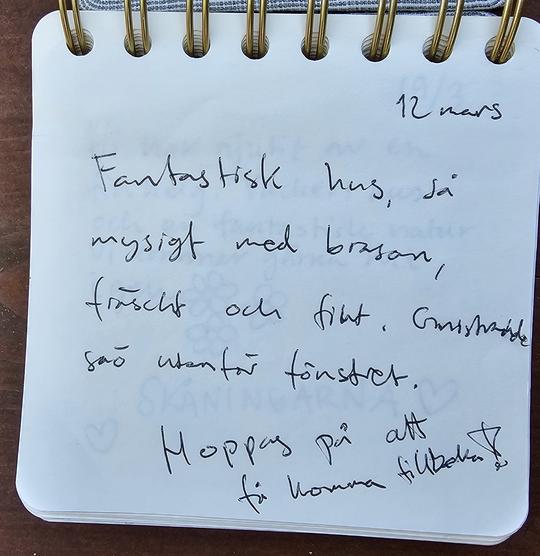 12 mars
Fantastisk hus, så
mysigt med brasan,
fräscht och fint. Gnistrande
snö utanför fönstret.
Hoppas på att
få komma tillbaka!
SKÅNINGARNA